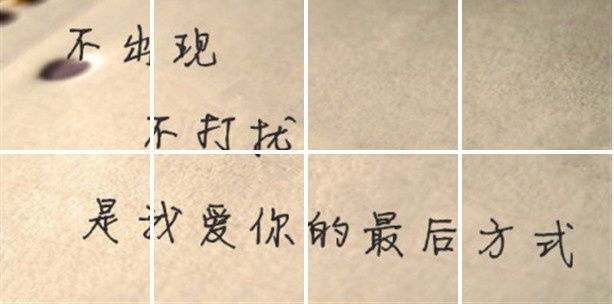 不出现
不打扰
是我爱你的最后方式